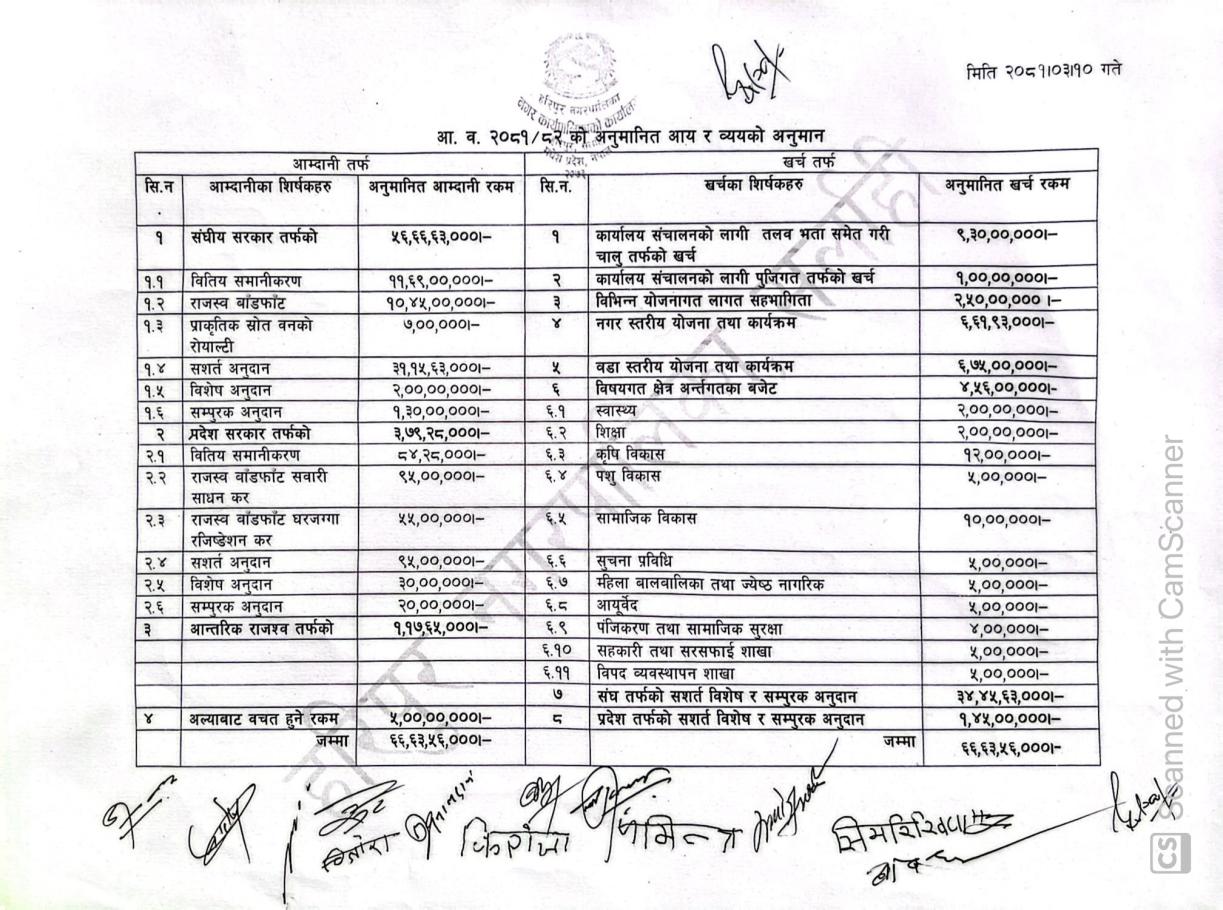 मिति २०८१।०३।१० गते
हरिपुर नगरपालिका
नगर कार्यपालिकाको कार्यालय
आ. व. २०८१/८२ को अनुमानित आय र व्ययको अनुमान
आम्दानी तर्फ खर्च तर्फ
सि.न आम्दानीका शिर्षकहरु अनुमानित आम्दानी रकम सि.न. खर्चका शिर्षकहरु अनुमानित खर्च रकम
१ संघीय सरकार तर्फको ५६,६६,६३,०००।– १ कार्यालय संचालनको लागी तलव भता समेत गरी ९,३०,००,०००।–
चालु तर्फको खर्च
१.१ वितिय समानीकरण ११,६९,००,०००।– २ कार्यालय संचालनको लागी पुजिगत तर्फको खर्च १,००,००,०००।–
१.२ राजस्व बाँडफाँट १०,४५,००,०००।– ३ विभिन्न योजनागत लागत सहभागिता २,५०,००,००० ।–
१.३ प्राकृतिक स्रोत वनको ७,००,०००।– ४ नगर स्तरीय योजना तथा कार्यक्रम ६,६१,९३,०००।–
रोयाल्टी
१.४ सशर्त अनुदान ३१,१५,६३,०००।– ५ वडा स्तरीय योजना तथा कार्यक्रम ६,७५,००,०००।–
१.५ विशेष अनुदान २,००,००,०००।– ६ विषयगत क्षेत्र अर्न्तगतका बजेट ४,५६,००,०००।-
१.६ सम्पुरक अनुदान १,३०,००,०००।– ६.१ स्वास्थ्य २,००,००,०००।–
२ प्रदेश सरकार तर्फको ३,७९,२८,०००।– ६.२ शिक्षा २,००,००,०००।–
२.१ वितिय समानीकरण ८४,२८,०००।– ६.३ कृषि विकास १२,००,०००।–
२.२ राजस्व बाँडफाँट सवारी ९५,००,०००।– ६.४ पशु विकास ५,००,०००।–
साधन कर
२.३ राजस्व बाँडफाँट घरजग्गा ५५,००,०००।– ६.५ सामाजिक विकास १०,००,०००।–
रजिष्डेशन कर
२.४ सशर्त अनुदान ९५,००,०००।– ६.६ सुचना प्रविधि ५,००,०००।–
२.५ विशेष अनुदान ३०,००,०००।– ६.७ महिला बालबालिका तथा ज्येष्ठ नागरिक ५,००,०००।–
२.६ सम्पुरक अनुदान २०,००,०००।– ६.८ आयूर्वेद ५,००,०००।–
३ आन्तरिक राजश्व तर्फको १,१७,६५,०००।– ६.९ पंजिकरण तथा सामाजिक सुरक्षा ४,००,०००।–
६.१० सहकारी तथा सरसफाई शाखा ५,००,०००।–
६.११ विपद व्यवस्थापन शाखा ५,००,०००।–
७ संघ तर्फको सशर्त विशेष र सम्पुरक अनुदान ३४,४५,६३,०००।–
४ अल्याबाट वचत हुने रकम ५,००,००,०००।– ८ प्रदेश तर्फको सशर्त विशेष र सम्पुरक अनुदान १,४५,००,०००।–
जम्मा ६६,६३,५६,०००।– जम्मा ६६,६३,५६,०००।-
हरिपुर नगरपालिका सर्लाही
CS Scanned with CamScanner